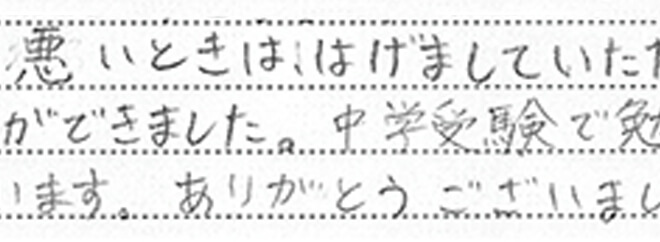 悪いときは、はげましていただ
ができました。中学受験で勉
います。ありがとうございまし